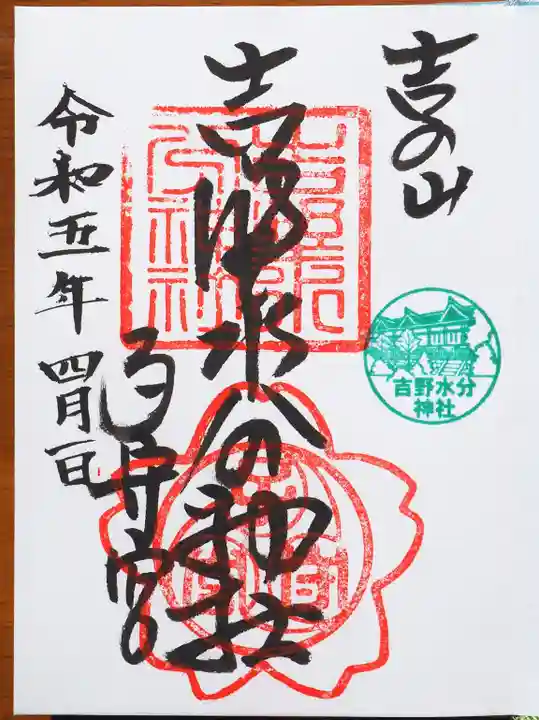 吉の山
吉野水分神社
子守宮
令和五年四月一日
吉野水分
神社